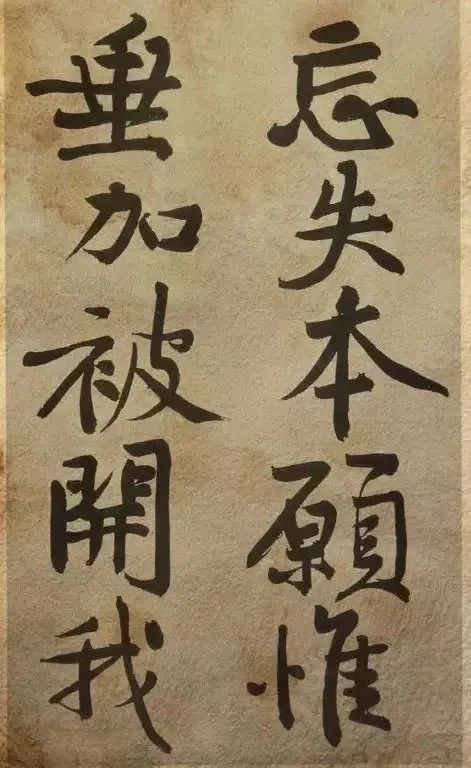 忘失本願惟
垂加被開我